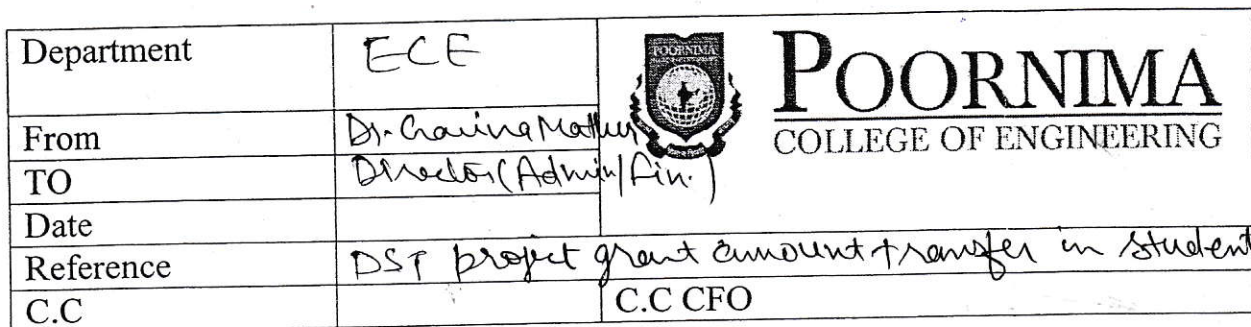 Department ECE
POORNIMA
POORNIMA
COLLEGE OF ENGINEERING
From Dr. Garima Mathur
TO Director (Admin/Fin.)
Date
Reference DST project grant amount transfer in student
C.C C.C CFO